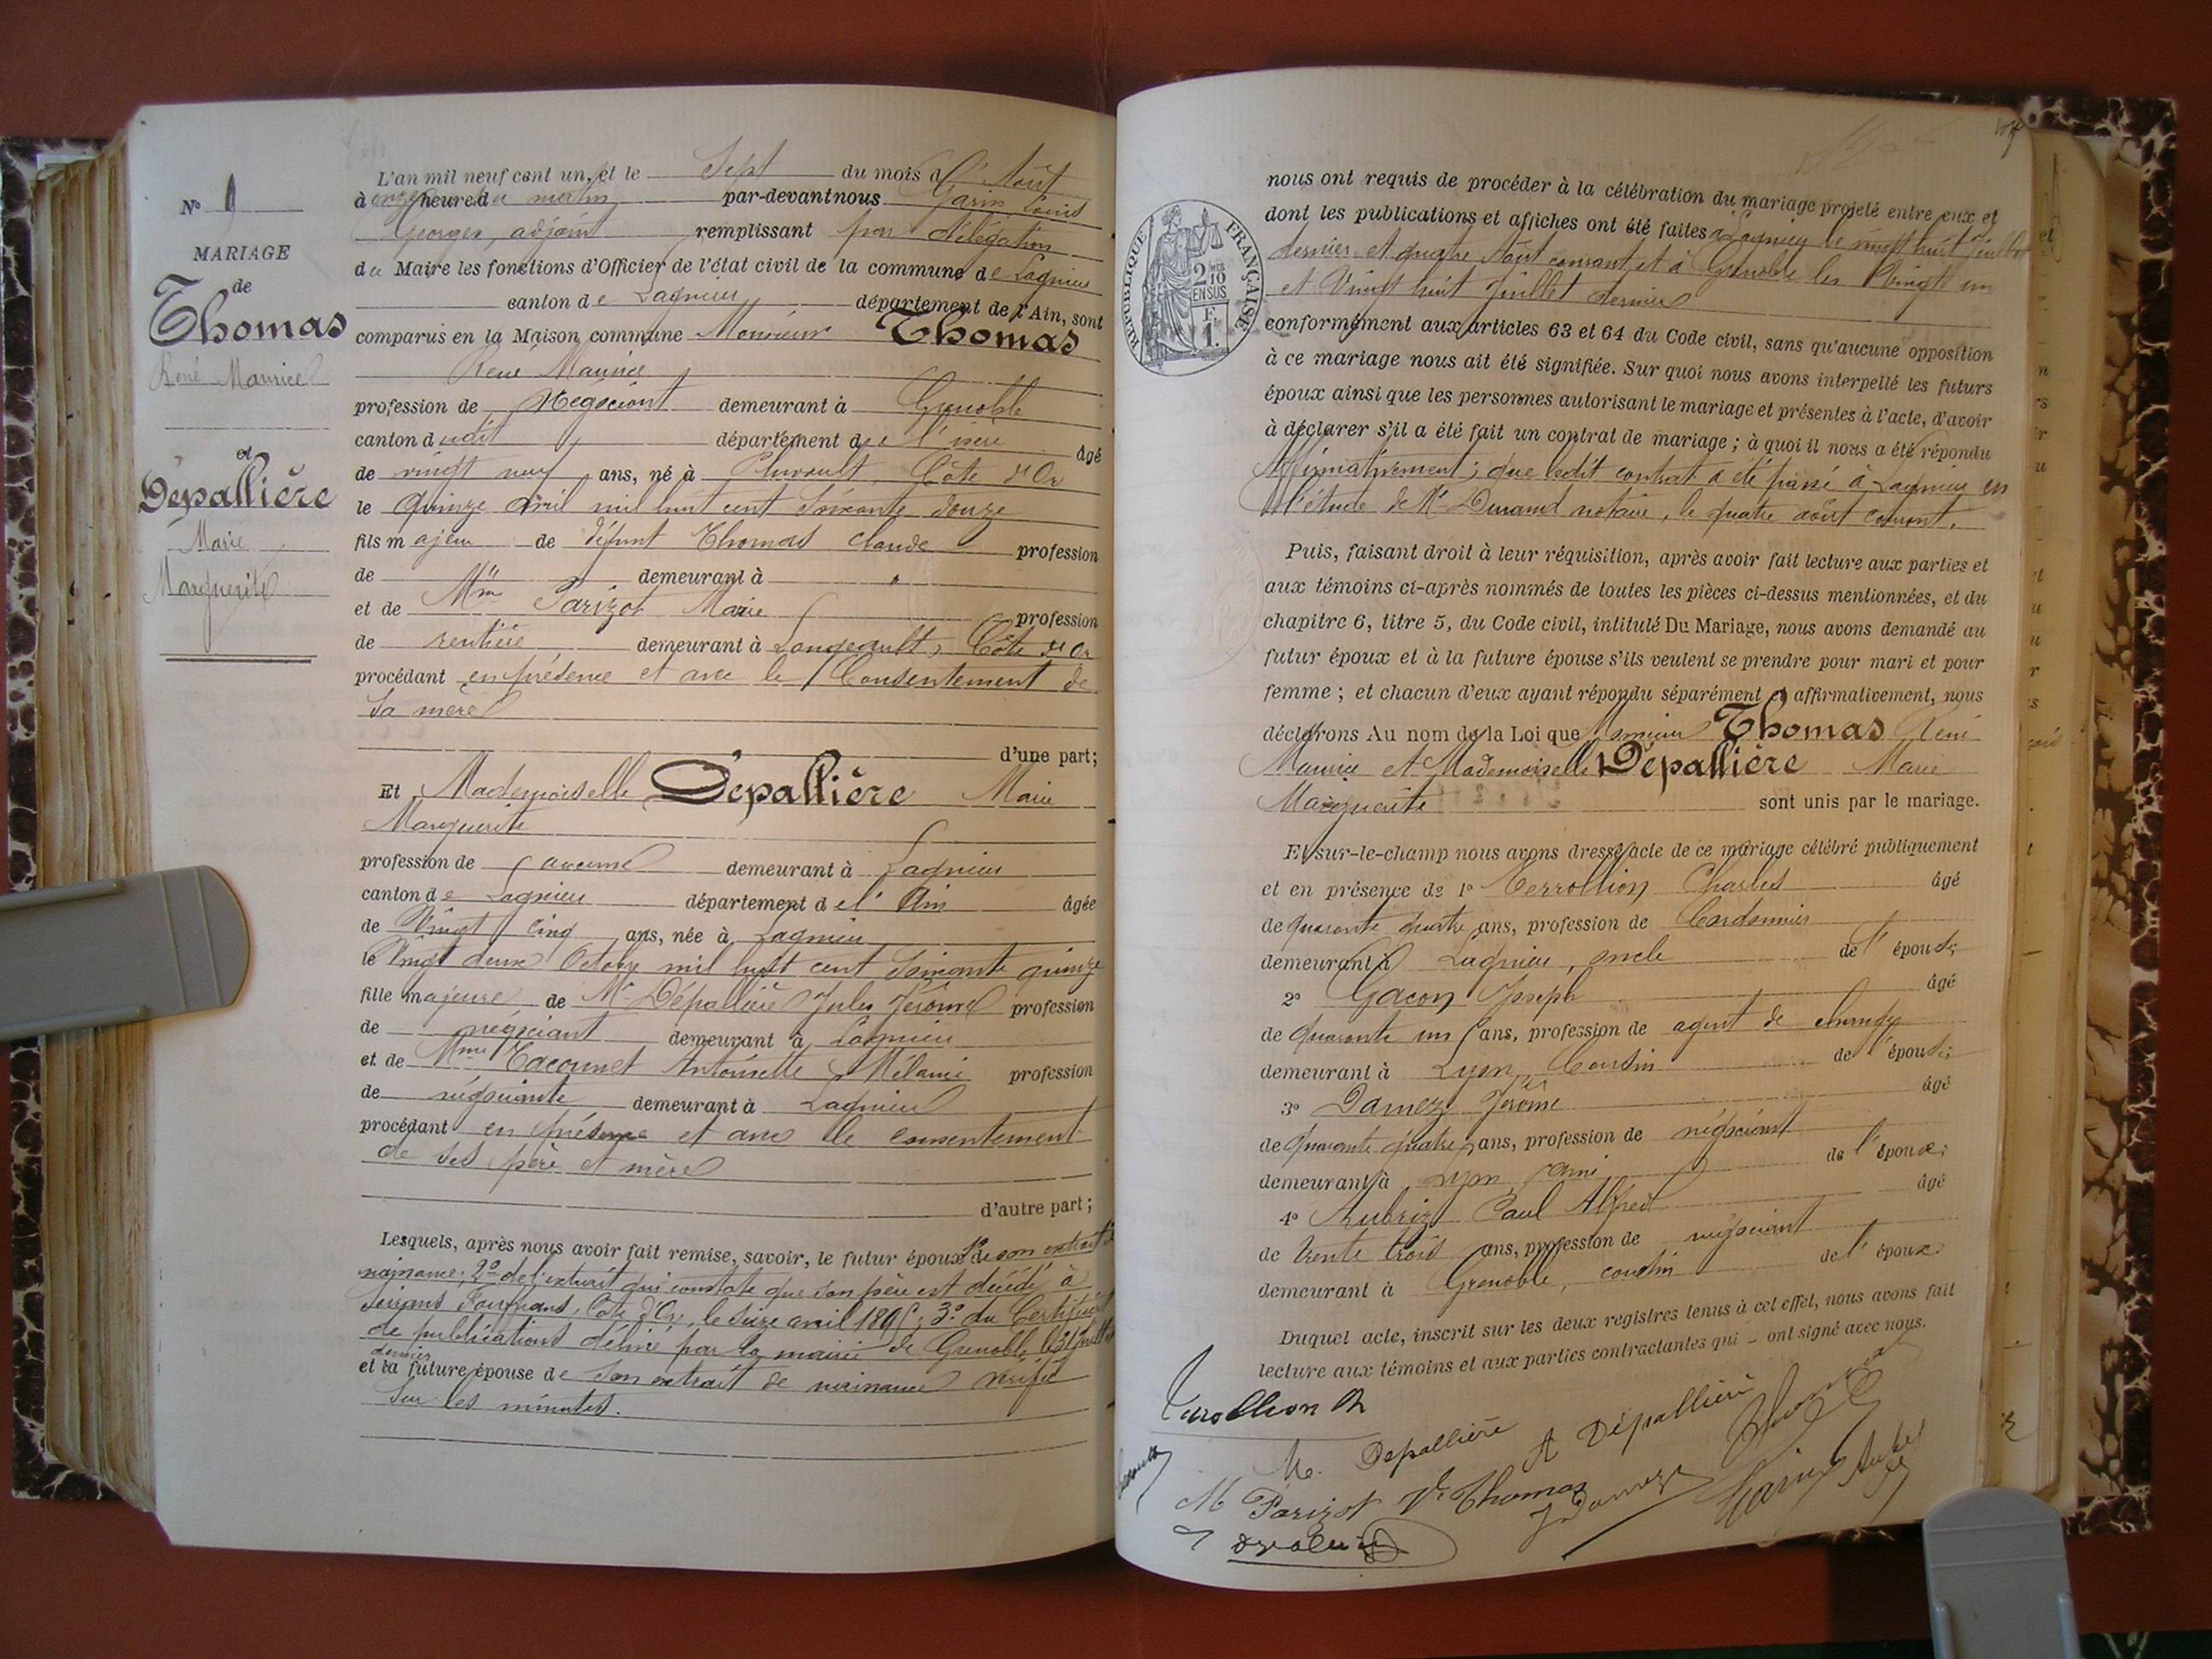 N° 9
MARIAGE
de
Thomas
René Maurice
et
Dépallière
Marie
Marguerite
L'an mil neuf cent un, et le Sept du mois d'Août
à onze heures du matin par-devant nous Garin Louis
Georges, adjoint remplissant par délégation
du Maire les fonctions d'Officier de l'état civil de la commune de Lagnieu
canton de Lagnieu département de l'Ain, sont
comparus en la Maison commune Monsieur Thomas
René Maurice
profession de Négociant demeurant à Grenoble
canton dudit département de l'isère âgé
de vingt neuf ans, né à Côte d'Or
le quinze avril mil huit cent soixante douze
fils majeur de défunt Thomas Claude profession
de " demeurant à "
et de Mme Parizot Marie profession
de rentière demeurant à Longeault, Côte d'Or
procédant en présence et avec le Consentement de
sa mère
d'une part;
Et Mademoiselle Dépallière Marie
Marguerite
profession de aucune demeurant à Lagnieu
canton de Lagnieu département de l'Ain âgée
de Vingt cinq ans, née à Lagnieu
le Vingt deux Octobre mil huit cent soixante quinze
fille majeure de Mr Dépallière Jules Jérôme profession
de négociant demeurant à Lagnieu
et de Mme Tacounet Antoinette Mélanie profession
de négociante demeurant à Lagnieu
procédant en présence et avec le consentement
de ses père et mère
d'autre part;
Lesquels, après nous avoir fait remise, savoir, le futur époux 1° de son extrait de
naissance; 2° de l'extrait qui constate que son père est décédé à
Côte d'Or, le seize avril 3° du Certificat
de publications délivré par la mairie de Grenoble
dernier
et la future épouse de son extrait de naissance vérifié
sur les minutes.
nous ont requis de procéder à la célébration du mariage projeté entre eux et
dont les publications et affiches ont été faites à Lagnieu le vingt huit Juillet
dernier et quatre Août courant et à Grenoble les Vingt un
et Vingt huit Juillet dernier
RÉPUBLIQUE FRANÇAISE
2 MES
10
EN SUS
F.
1.
conformément aux articles 63 et 64 du Code civil, sans qu'aucune opposition
à ce mariage nous ait été signifiée. Sur quoi nous avons interpellé les futurs
époux ainsi que les personnes autorisant le mariage et présentes à l'acte, d'avoir
à déclarer s'il a été fait un contrat de mariage ; à quoi il nous a été répondu
Affirmativement; que ledit contrat a été passé à Lagnieu en
l'étude de Me Durand notaire, le quatre août courant.
Puis, faisant droit à leur réquisition, après avoir fait lecture aux parties et
aux témoins ci-après nommés de toutes les pièces ci-dessus mentionnées, et du
chapitre 6, titre 5, du Code civil, intitulé Du Mariage, nous avons demandé au
futur époux et à la future épouse s'ils veulent se prendre pour mari et pour
femme ; et chacun d'eux ayant répondu séparément et affirmativement, nous
déclarons Au nom de la Loi que Monsieur Thomas René
Maurice et Mademoiselle Dépallière Marie
Marguerite sont unis par le mariage.
Et sur-le-champ nous avons dressé acte de ce mariage célébré publiquement
et en présence de 1° Terrollion Charles âgé
de quarante quatre ans, profession de Cordonnier
demeurant à Lagnieu, oncle de l'épouse;
2° Gacon Joseph âgé
de quarante un ans, profession de agent de change
demeurant à Lyon, Cousin de l'épouse;
3° Damez Jérôme âgé
de quarante quatre ans, profession de négociant
demeurant à Lyon, ami de l'époux;
4° Aubriet Paul Alfred âgé
de trente trois ans, profession de négociant
demeurant à Grenoble, cousin de l'époux
Duquel acte, inscrit sur les deux registres tenus à cet effet, nous avons fait
lecture aux témoins et aux parties contractantes qui - ont signé avec nous.
Terollion Ch
Me. Depallière A Dépallière Thomas
M Parizot Ve Thomas J Damez Garin